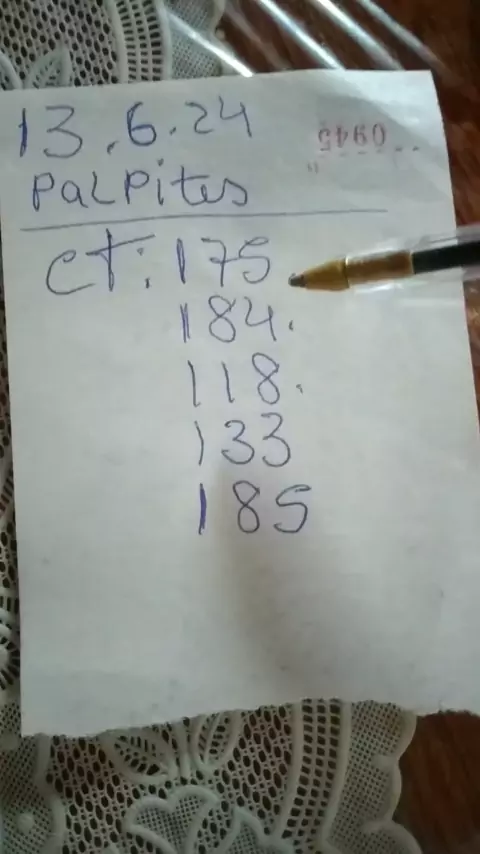 13.6.24
0945
PALPites
CT: 175
184.
118.
133
185